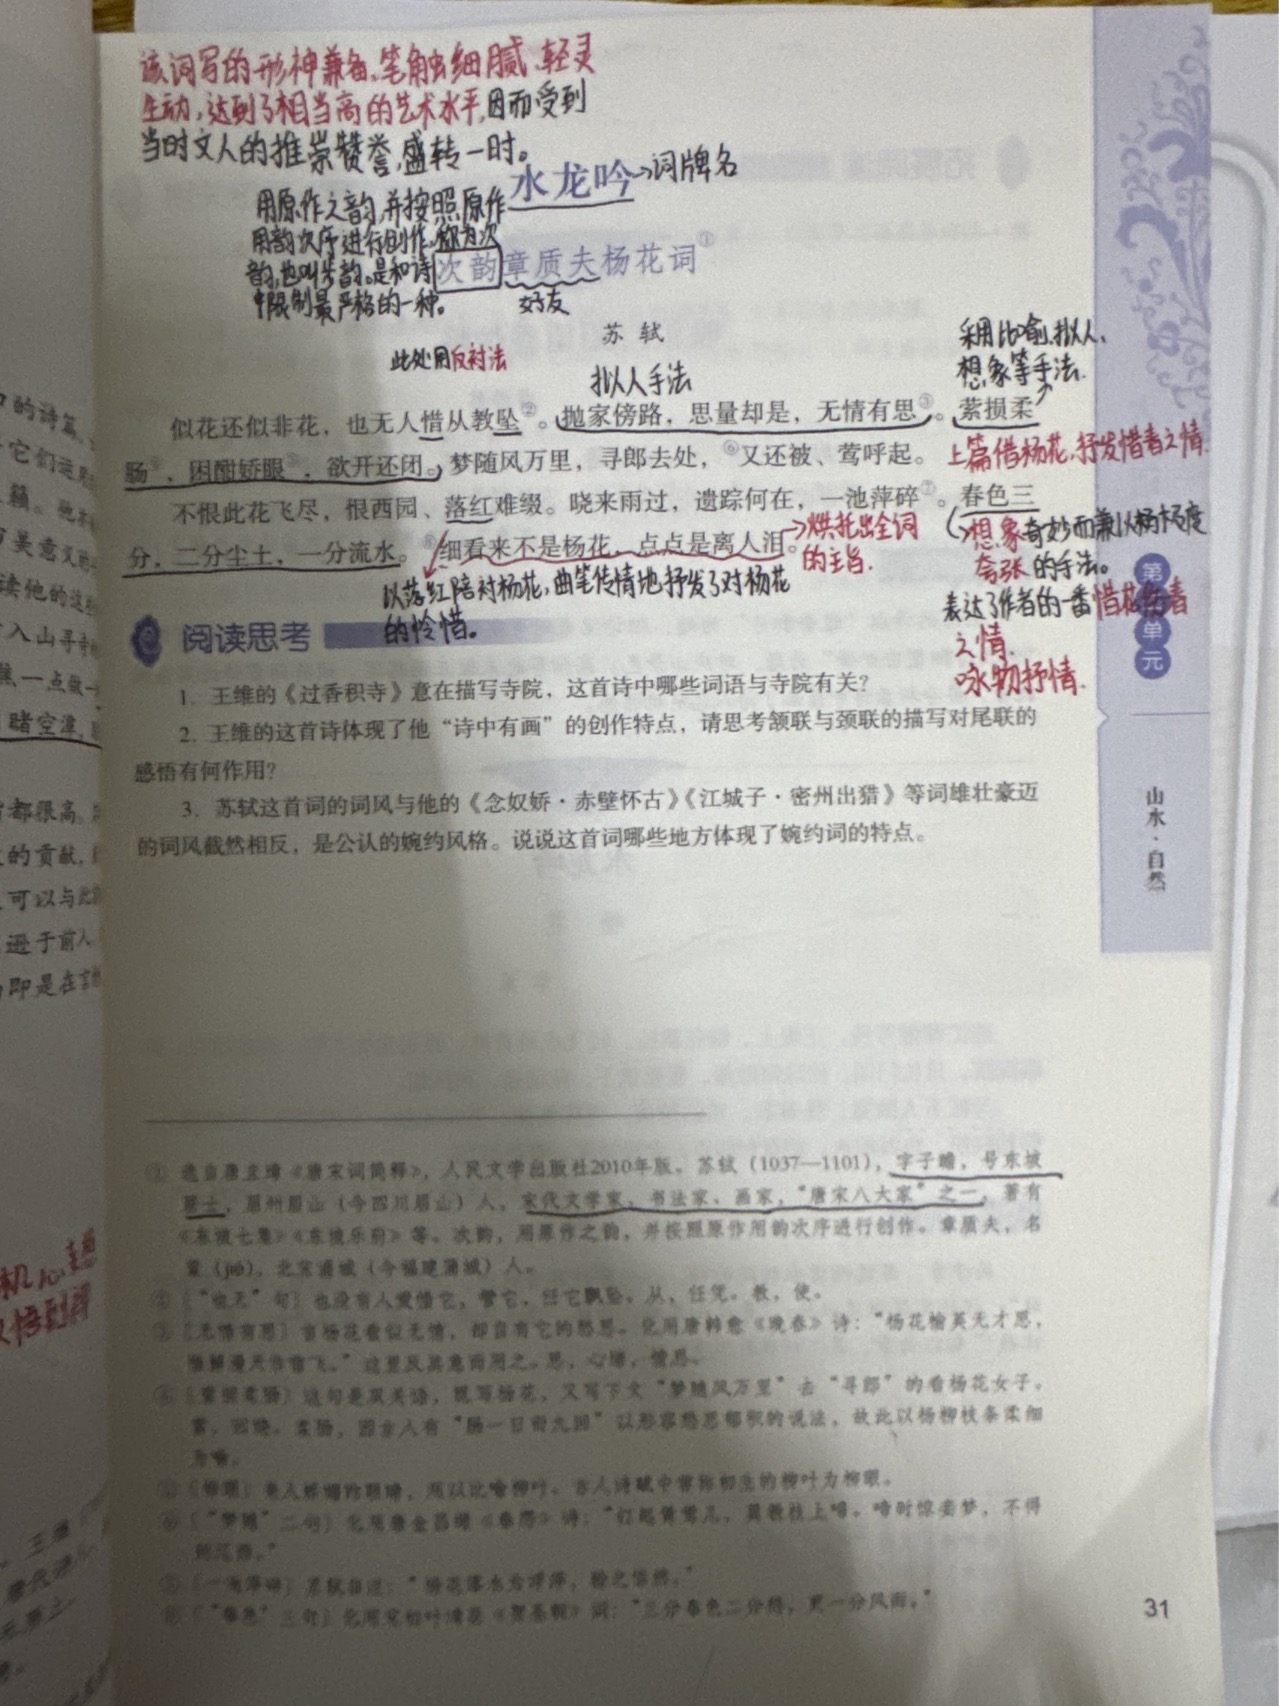 该词写的形神兼备、笔触细腻、轻灵
生动,达到了相当高的艺术水平,因而受到
当时文人的推崇赞誉,盛转一时。
水龙吟→词牌名
用原作之韵,并按照原作
用韵次序进行创作,称为次
韵,也叫步韵。是和诗
中限制最严格的一种。
次韵章质夫杨花词①
好友
苏 轼
此处用反衬法
拟人手法
采用比喻、拟人、
想象等手法.
似花还似非花，也无人惜从教坠②。抛家傍路，思量却是，无情有思③。萦损柔
肠④，困酣娇眼⑤，欲开还闭。梦随风万里，寻郎去处，⑥又还被、莺呼起。
上篇借杨花,抒发惜春之情.
不恨此花飞尽，恨西园、落红难缀。晓来雨过，遗踪何在，一池萍碎⑦。春色三
分，二分尘土，一分流水。⑧细看来不是杨花，点点是离人泪。
→烘托出全词
的主旨.
想象奇妙而兼以极度
夸张的手法。
表达了作者的一番惜花伤春
之情.
咏物抒情.
以落红陪衬杨花,曲笔传情地抒发了对杨花
的怜惜。
阅读思考
1. 王维的《过香积寺》意在描写寺院，这首诗中哪些词语与寺院有关?
2. 王维的这首诗体现了他“诗中有画”的创作特点，请思考颔联与颈联的描写对尾联的
感悟有何作用?
3. 苏轼这首词的词风与他的《念奴娇·赤壁怀古》《江城子·密州出猎》等词雄壮豪迈
的词风截然相反，是公认的婉约风格。说说这首词哪些地方体现了婉约词的特点。
第
单
元
山水·自然
① 选自唐圭璋《唐宋词简释》，人民文学出版社2010年版。苏轼（1037—1101），字子瞻，号东坡
居士，眉州眉山（今四川眉山）人，宋代文学家、书法家、画家，“唐宋八大家”之一，著有
《东坡七集》《东坡乐府》等。次韵，用原作之韵，并按照原作用韵次序进行创作。章质夫，名
楶（jié），北宋浦城（今福建蒲城）人。
②〔“也无”句〕也没有人爱惜它，管它，任它飘坠。从，任凭。教，使。
③〔无情有思〕言杨花看似无情，却自有它的愁思。化用唐韩愈《晚春》诗：“杨花榆荚无才思，
惟解漫天作雪飞。”这里反其意而用之。思，心绪，情思。
④〔萦损柔肠〕这句是双关语，既写杨花，又写下文“梦随风万里”去“寻郎”的看杨花女子。
萦，萦绕。柔肠，因古人有“肠一日而九回”以形容愁思郁积的说法，故此以杨柳枝条柔细
为喻。
⑤〔娇眼〕美人娇媚的眼睛，用以比喻柳叶。古人诗赋中常称初生的柳叶为柳眼。
⑥〔“梦随”二句〕化用唐金昌绪《春怨》诗：“打起黄莺儿，莫教枝上啼。啼时惊妾梦，不得
到辽西。”
⑦〔一池萍碎〕苏轼自注：“杨花落水为浮萍，验之信然。”
⑧〔“春色”三句〕化用宋初叶清臣《贺圣朝》词：“三分春色二分愁，更一分风雨。”
31